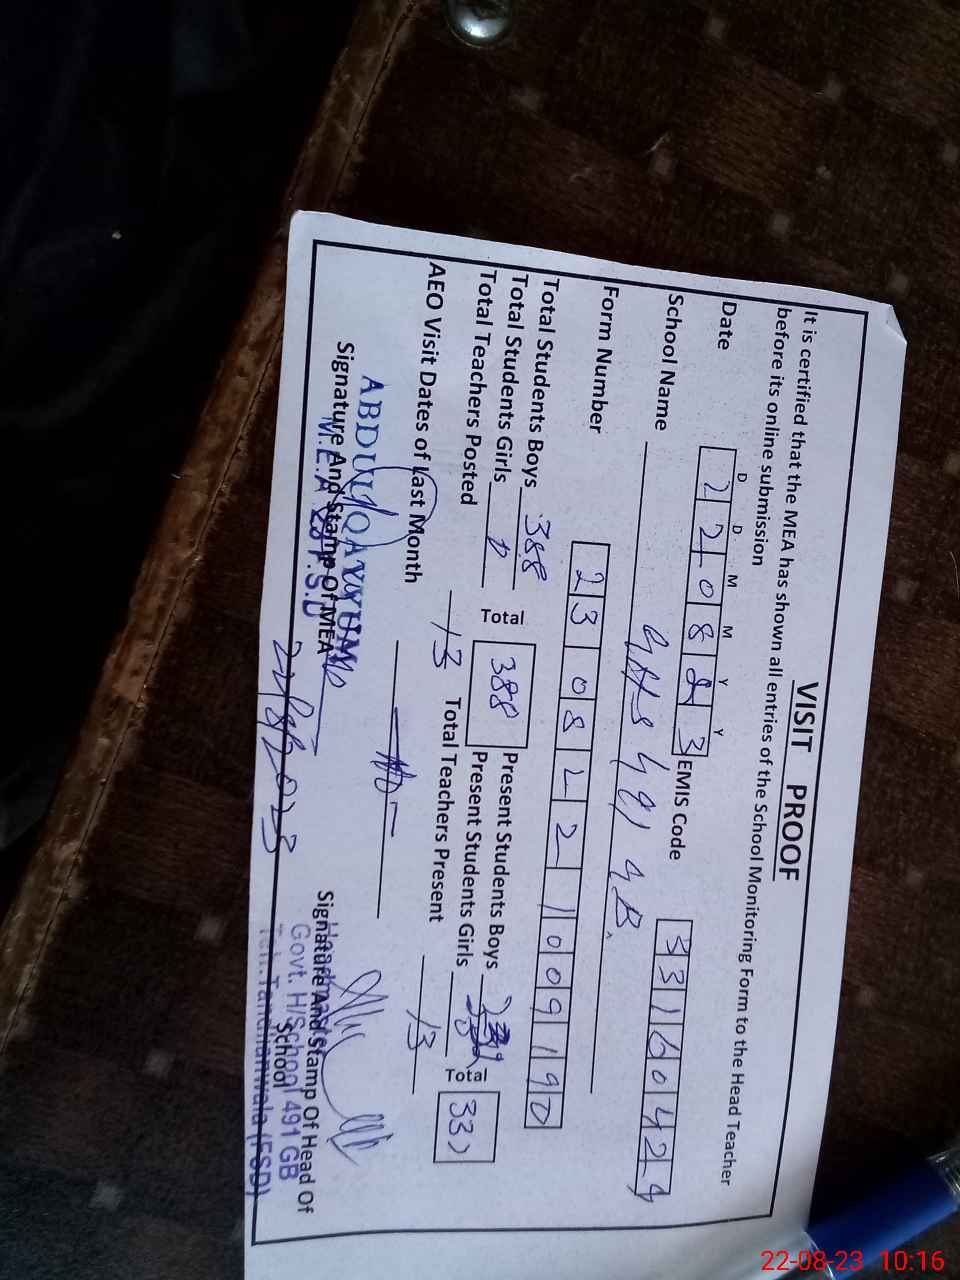 VISIT PROOF
It is certified that the MEA has shown all entries of the School Monitoring Form to the Head Teacher
before its online submission
D D M M Y Y
Date 220823 EMIS Code 33160424
School Name GHS 491 GB.
Form Number 2308221009190
Total Students Boys 388 Total 388 Present Students Boys Total 337
Total Students Girls 0 Present Students Girls 0
Total Teachers Posted 13 Total Teachers Present 13
AEO Visit Dates of Last Month
ABDUL QAYYUM
Signature And Stamp Of MEA
M.E.A F.S.D
22/8/2023
Signature And Stamp Of Head Of
School
Headmaster
Govt. H/School 491 GB
Teh. Tandlianwala (FSD)
22-08-23 10:16